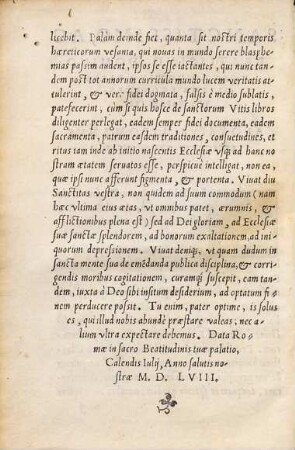 licebit. Palàm deinde fiet, quanta sit nostri temporis
hæreticorum vesania, qui nouas in mundo serere blasphe
mias passim audent, ipsos se esse iactantes, qui nunc tan
dem post tot annorum curricula mundo lucem veritatis at
tulerint, & veræ fidei dogmata, falsis è medio sublatis,
patefecerint, cùm si quis hosce de sanctorum Vitis libros
diligenter perlegat, eadem semper fidei documenta, eadem
sacramenta, patrum easdem traditiones, consuetudines, et
ritus iam inde ab initio nascentis Ecclesiæ vsq; ad hanc no
stram ætatem seruatos esse, perspicuè intelligat, non ea,
quæ ipsi nunc afferunt figmenta, & portenta. Viuat diu
Sanctitas vestra, non quidem ad suum commodum (nam
hæc vltima eius ætas, vt omnibus patet, ærumnis, &
afflictionibus plena est) sed ad Dei gloriam, ad Ecclesiæ
suæ sanctæ splendorem, ad bonorum exaltationem, ad ini-
quorum depressionem. Viuat deniq; vt quam dudum in
sancta mente sua de emẽdanda publica disciplina, & corri-
gendis moribus cogitationem, curamq; suscepit, eam tan-
dem, iuxta à Deo sibi insitum desiderium, ad optatum fi-
nem perducere possit. Tu enim, pater optime, is solus
es, qui illud nobis abundè præstare valeas, nec a-
lium vltra expectare debemus. Data Ro-
mæ in sacro Beatitudinis tuæ palatio,
Calendis Iulij, Anno salutis no-
stræ M. D. LVIII.